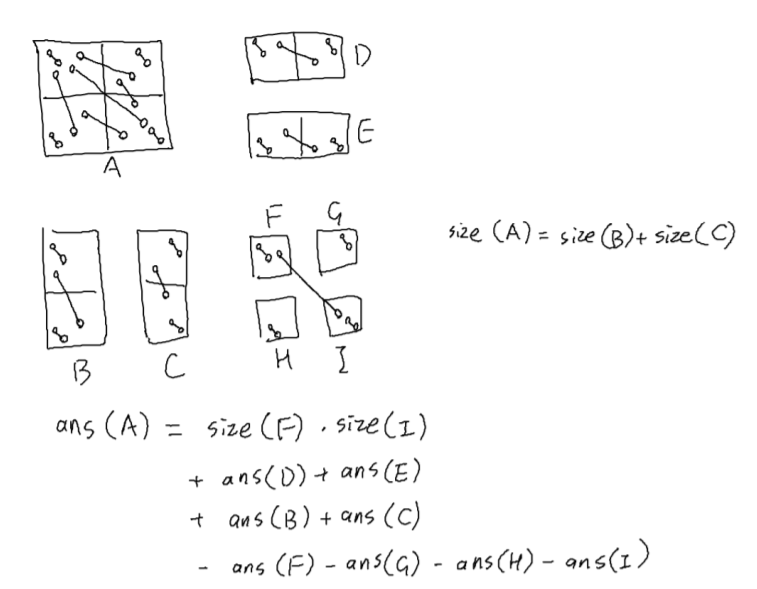 A
D
E
B
C
F G
H I
size (A) = size(B) + size(C)
ans (A) = size (F) . size(I)
+ ans(D) + ans(E)
+ ans(B) + ans (C)
- ans (F) - ans(G) - ans(H) - ans(I)